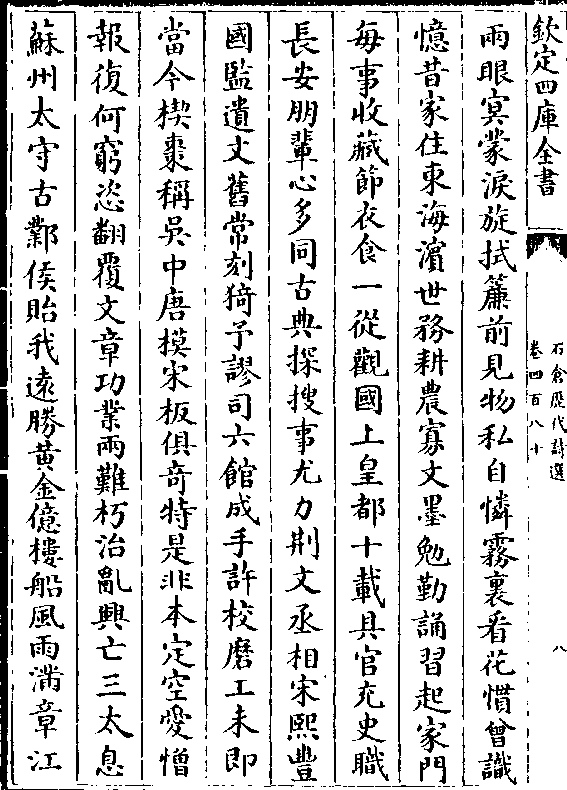 欽定四庫全書
石倉歷代詩選
卷四百八十
八
兩眼㝠蒙淚旋拭簾前見物私自憐霧裏看花慣曾識
憶昔家住東海濵世務耕農寡文墨勉勤誦習起家門
每事收藏節衣食一從觀國上皇都十載具官充史職
長安朋輩心多同古典探搜事尤力荆文丞相宋熙豐
國監遺文舊常刻猗予謬司六館成手許校磨工未即
當今楔棗稱吳中唐摸宋板俱奇特是非本定空愛憎
報復何窮恣翻覆文章功業兩難朽治亂興亡三太息
蘇州太守古酇侯貽我遠勝黄金億樓船風雨滿章江